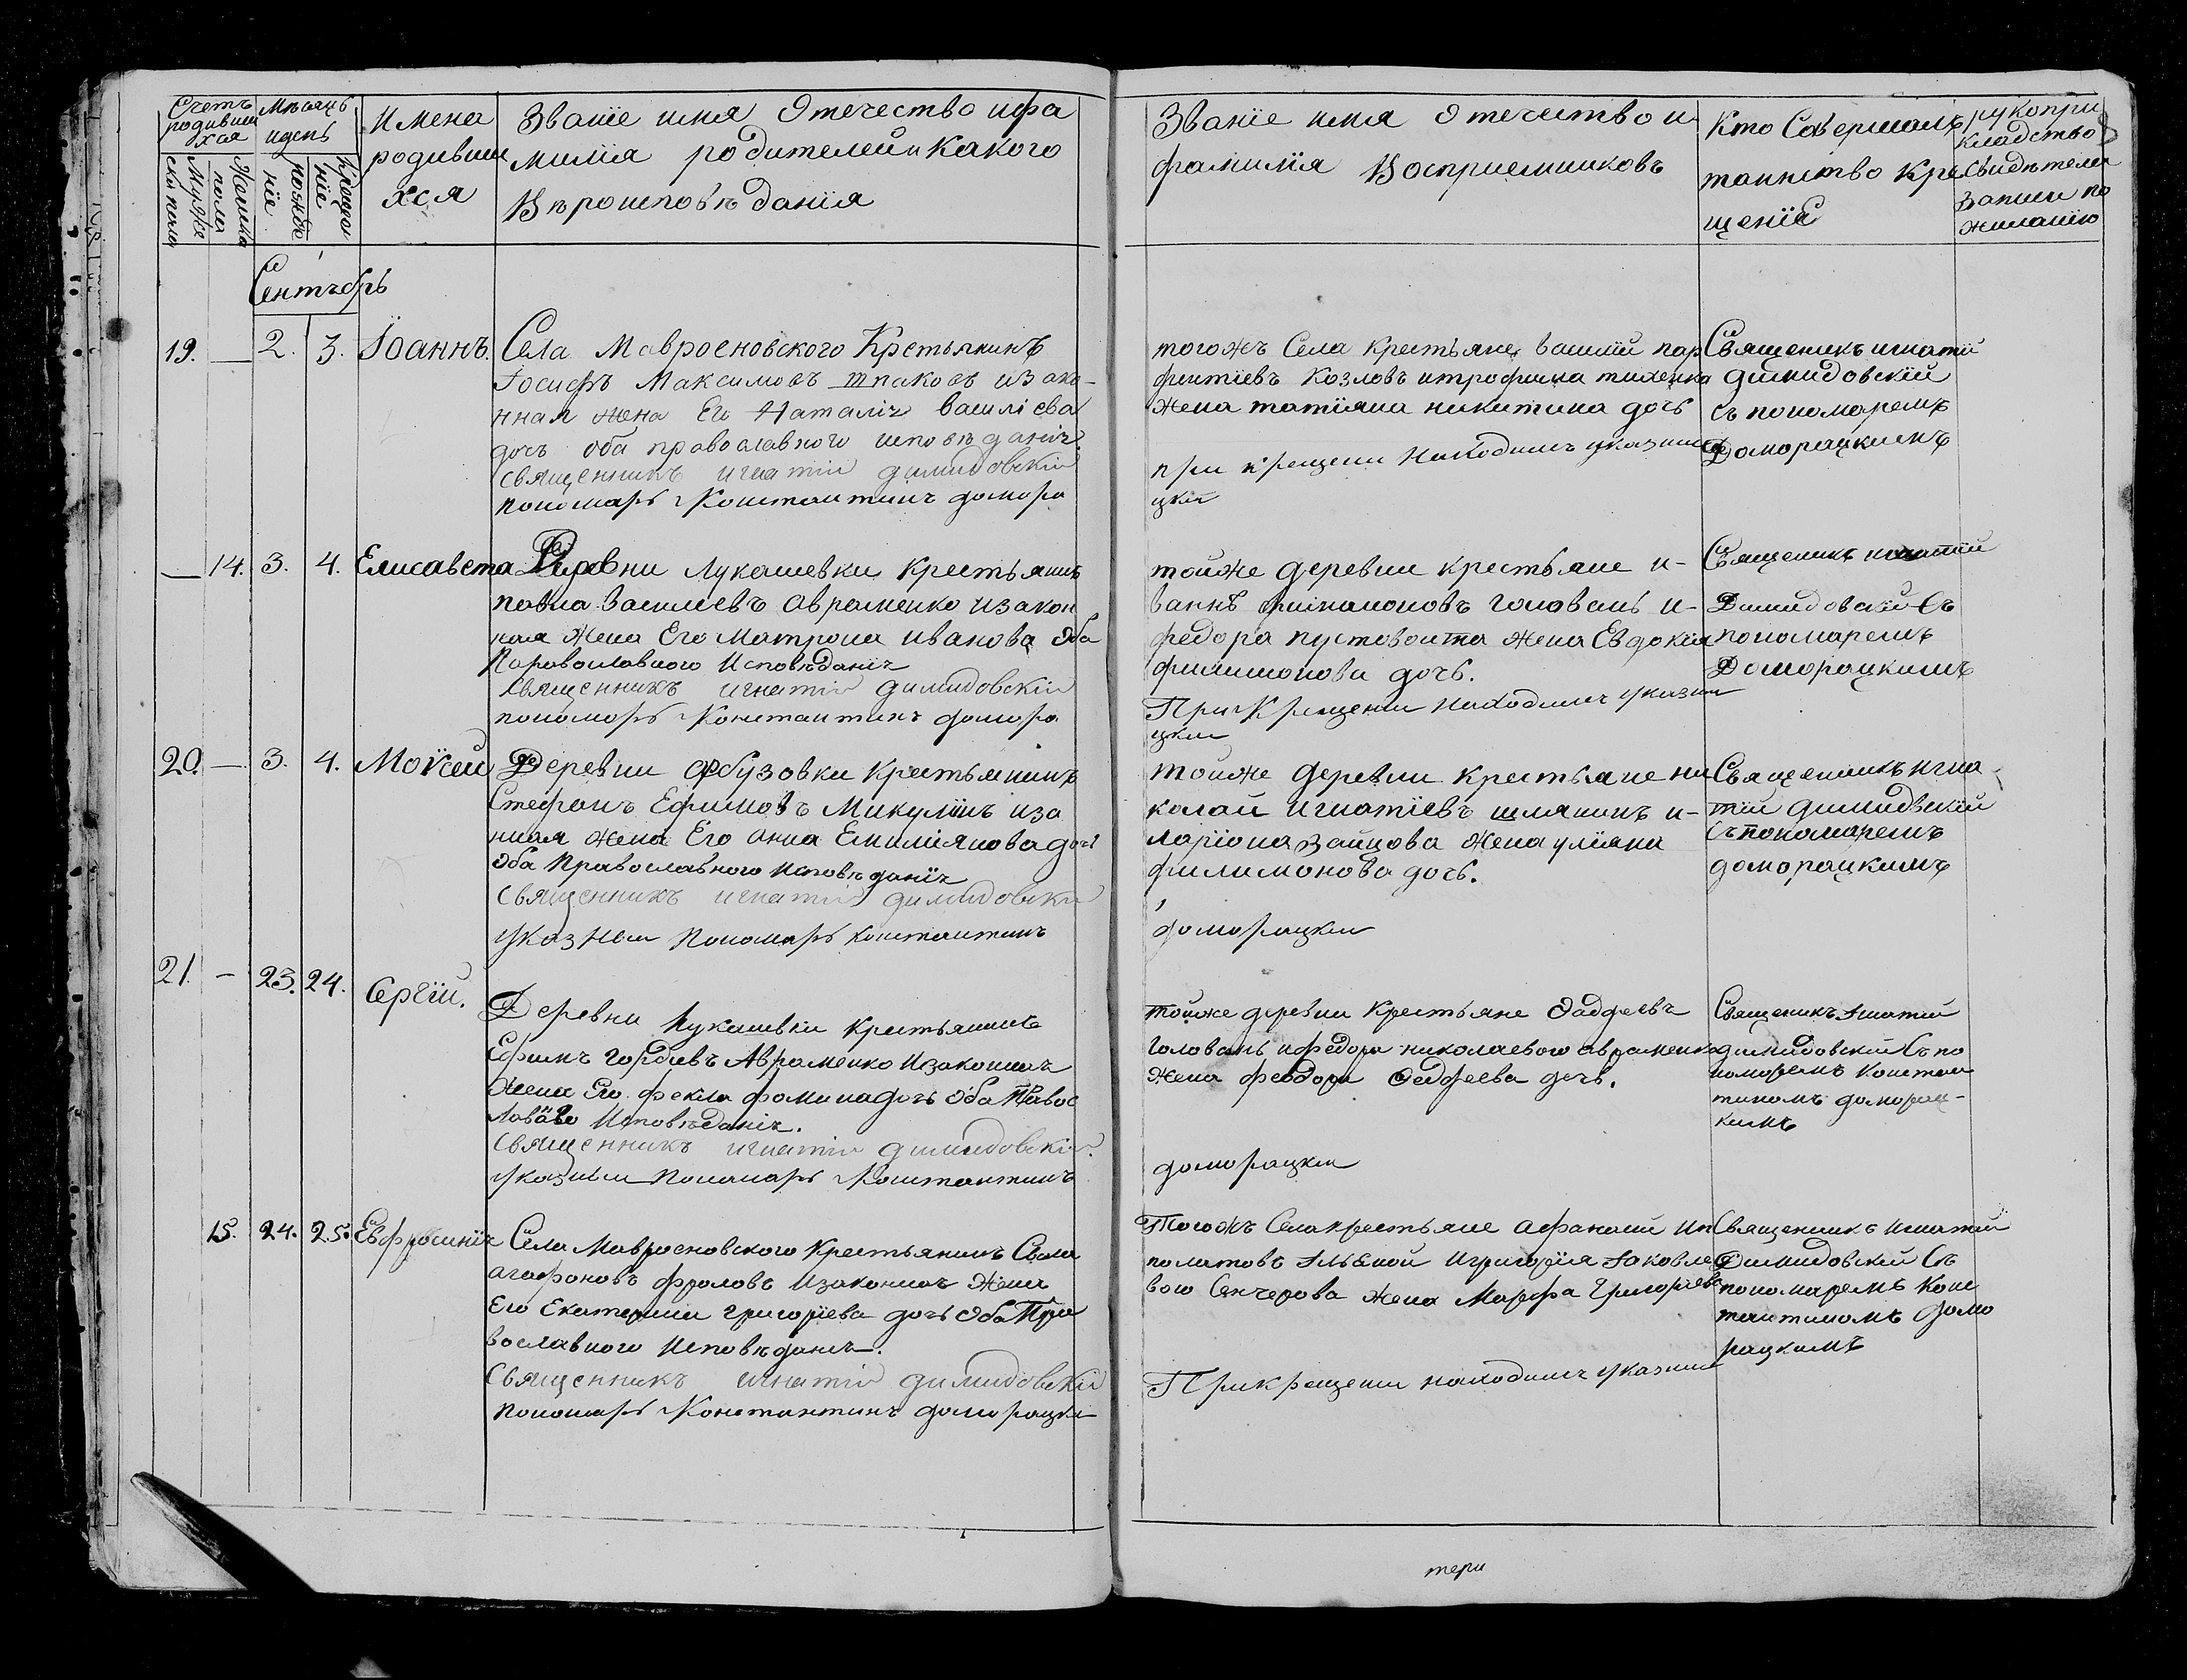 Счетъ родивши хся
Мужескапола
Женска пола
Мѣсяцъ идень
рождѣніе
Крещеніе
Имена родивши хся
Званіе имя Отечество ифа
милія родителей и Какого
Вѣроисповѣданія
Званіе имя Отечество и
фамилія Восприемниковъ
Кто Совершалъ
таинство Кре
щеніе
рукопри
кладство
Свидѣтелей
записи по
желанію
Сентябрь
19. — 2. 3. Іоаннъ.
Села Мавроеновского Крестьянинъ
Іосифъ Максимовъ шпаковъ изако-
нная жена Его Наталія василіева
дочъ оба православного исповѣданія
священникъ игнатій димидовскій
пономаръ Константинъ домора
тогожъ Села крестьяне василій пар
фентіевъ Козловъ итрофима тихенка
жена татіяна никитина дочь
при крещеніи находился указный
цкій
Священикъ игнатій
Димидовскій
съ пономаремъ
Доморацкимъ
— 14. 3. 4. Елисавета
Деревни Лукашевки крестьянинъ
павла василіевъ авраменко изакон
ная жена Его Матрона иванова оба
Паровославного Исповѣданія
священникъ игнатій димидовскій
пономаръ Константинъ домора
тойже деревни крестьяне и-
ваннъ филимоновъ головань и-
федора пустовойта жена Евдокія
филимонова дочь.
При Крещеніи находился указный
цкій
Священикъ игнатій
Димидовскій Съ
пономаремъ
Доморацкимъ
20. — 3. 4. Моѵсей
Деревни Арбузовки крестьянинъ
Стефанъ Ефимовъ Микулинъ иза
нная жена Его анна Емиліянова дочь
оба Православного Исповѣданія
священникъ игнатій димидовскій
указный пономаръ константинъ
тойже деревни крестьяне ни
колай игнатіевъ шляшинъ и-
ларіона зайцова жена уліяна
филимонова дочь.
доморацкій
Священникъ игна
тій димидвскій
съ пономаремъ
доморацкимъ
21. — 23. 24. Сергій.
Деревни Лукашевки крестьянинъ
Ефимъ гордіевъ Авраменко Изаконная
жена Его фекла фомина дочь оба Правос
лавного Исповѣданія.
священникъ игнатій димидовскій
указный пономаръ Константинъ
тойже деревни крестьяне Фадфеевъ
Головань ифедора николаевого авраменка
жена феодора Фадфеева дочь.
доморацкій
Священикъ Игнатій
димидовскій Съ по
номаремъ Констан
тиномъ доморац-
кимъ
15. 24. 25. Евфросинія
Села Мавроеновского Крестьянинъ Сава
агафоновъ фроловъ Изаконная жена
Его Екатерина григоріева дочь оба Пра
вославного Исповѣданія.
священникъ игнатій димидовскій
пономаръ Константинъ доморацкій
Тогожъ Села крестьяне афанасій ип
политовъ Игригорія Іаковле
вого жена Марфа Григоріева
При крещеніи находился указный
Священникъ Игнатій
Димидовскій Съ
пономаремъ Конс
тантиномъ домо
рацкимъ
тери